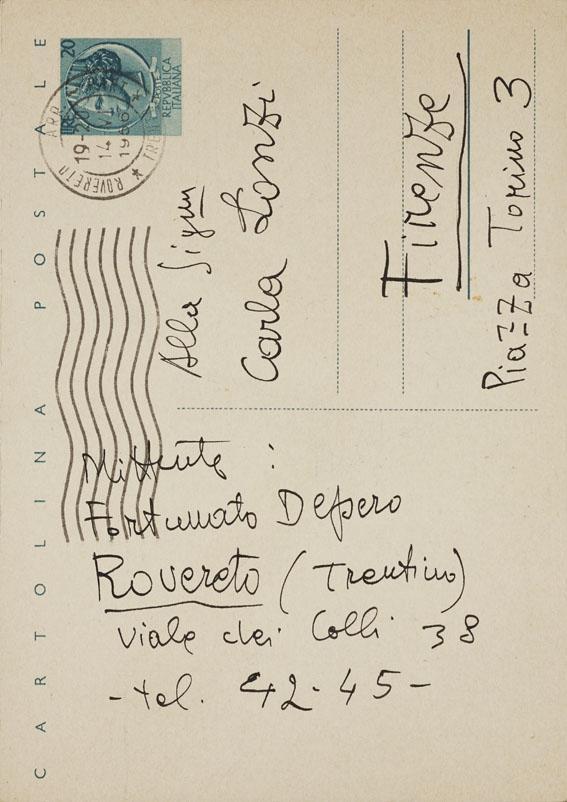 CARTOLINA POSTALE
20
REPVBBLICA
ITALIANA
ROVERETO
19-20
14
Alla Sigra
Carla Lonzi
Firenze
Piazza Torino 3
Mittente :
Fortunato Depero
Rovereto (Trentino)
Viale dei Colli 38
-tel. 42-45-